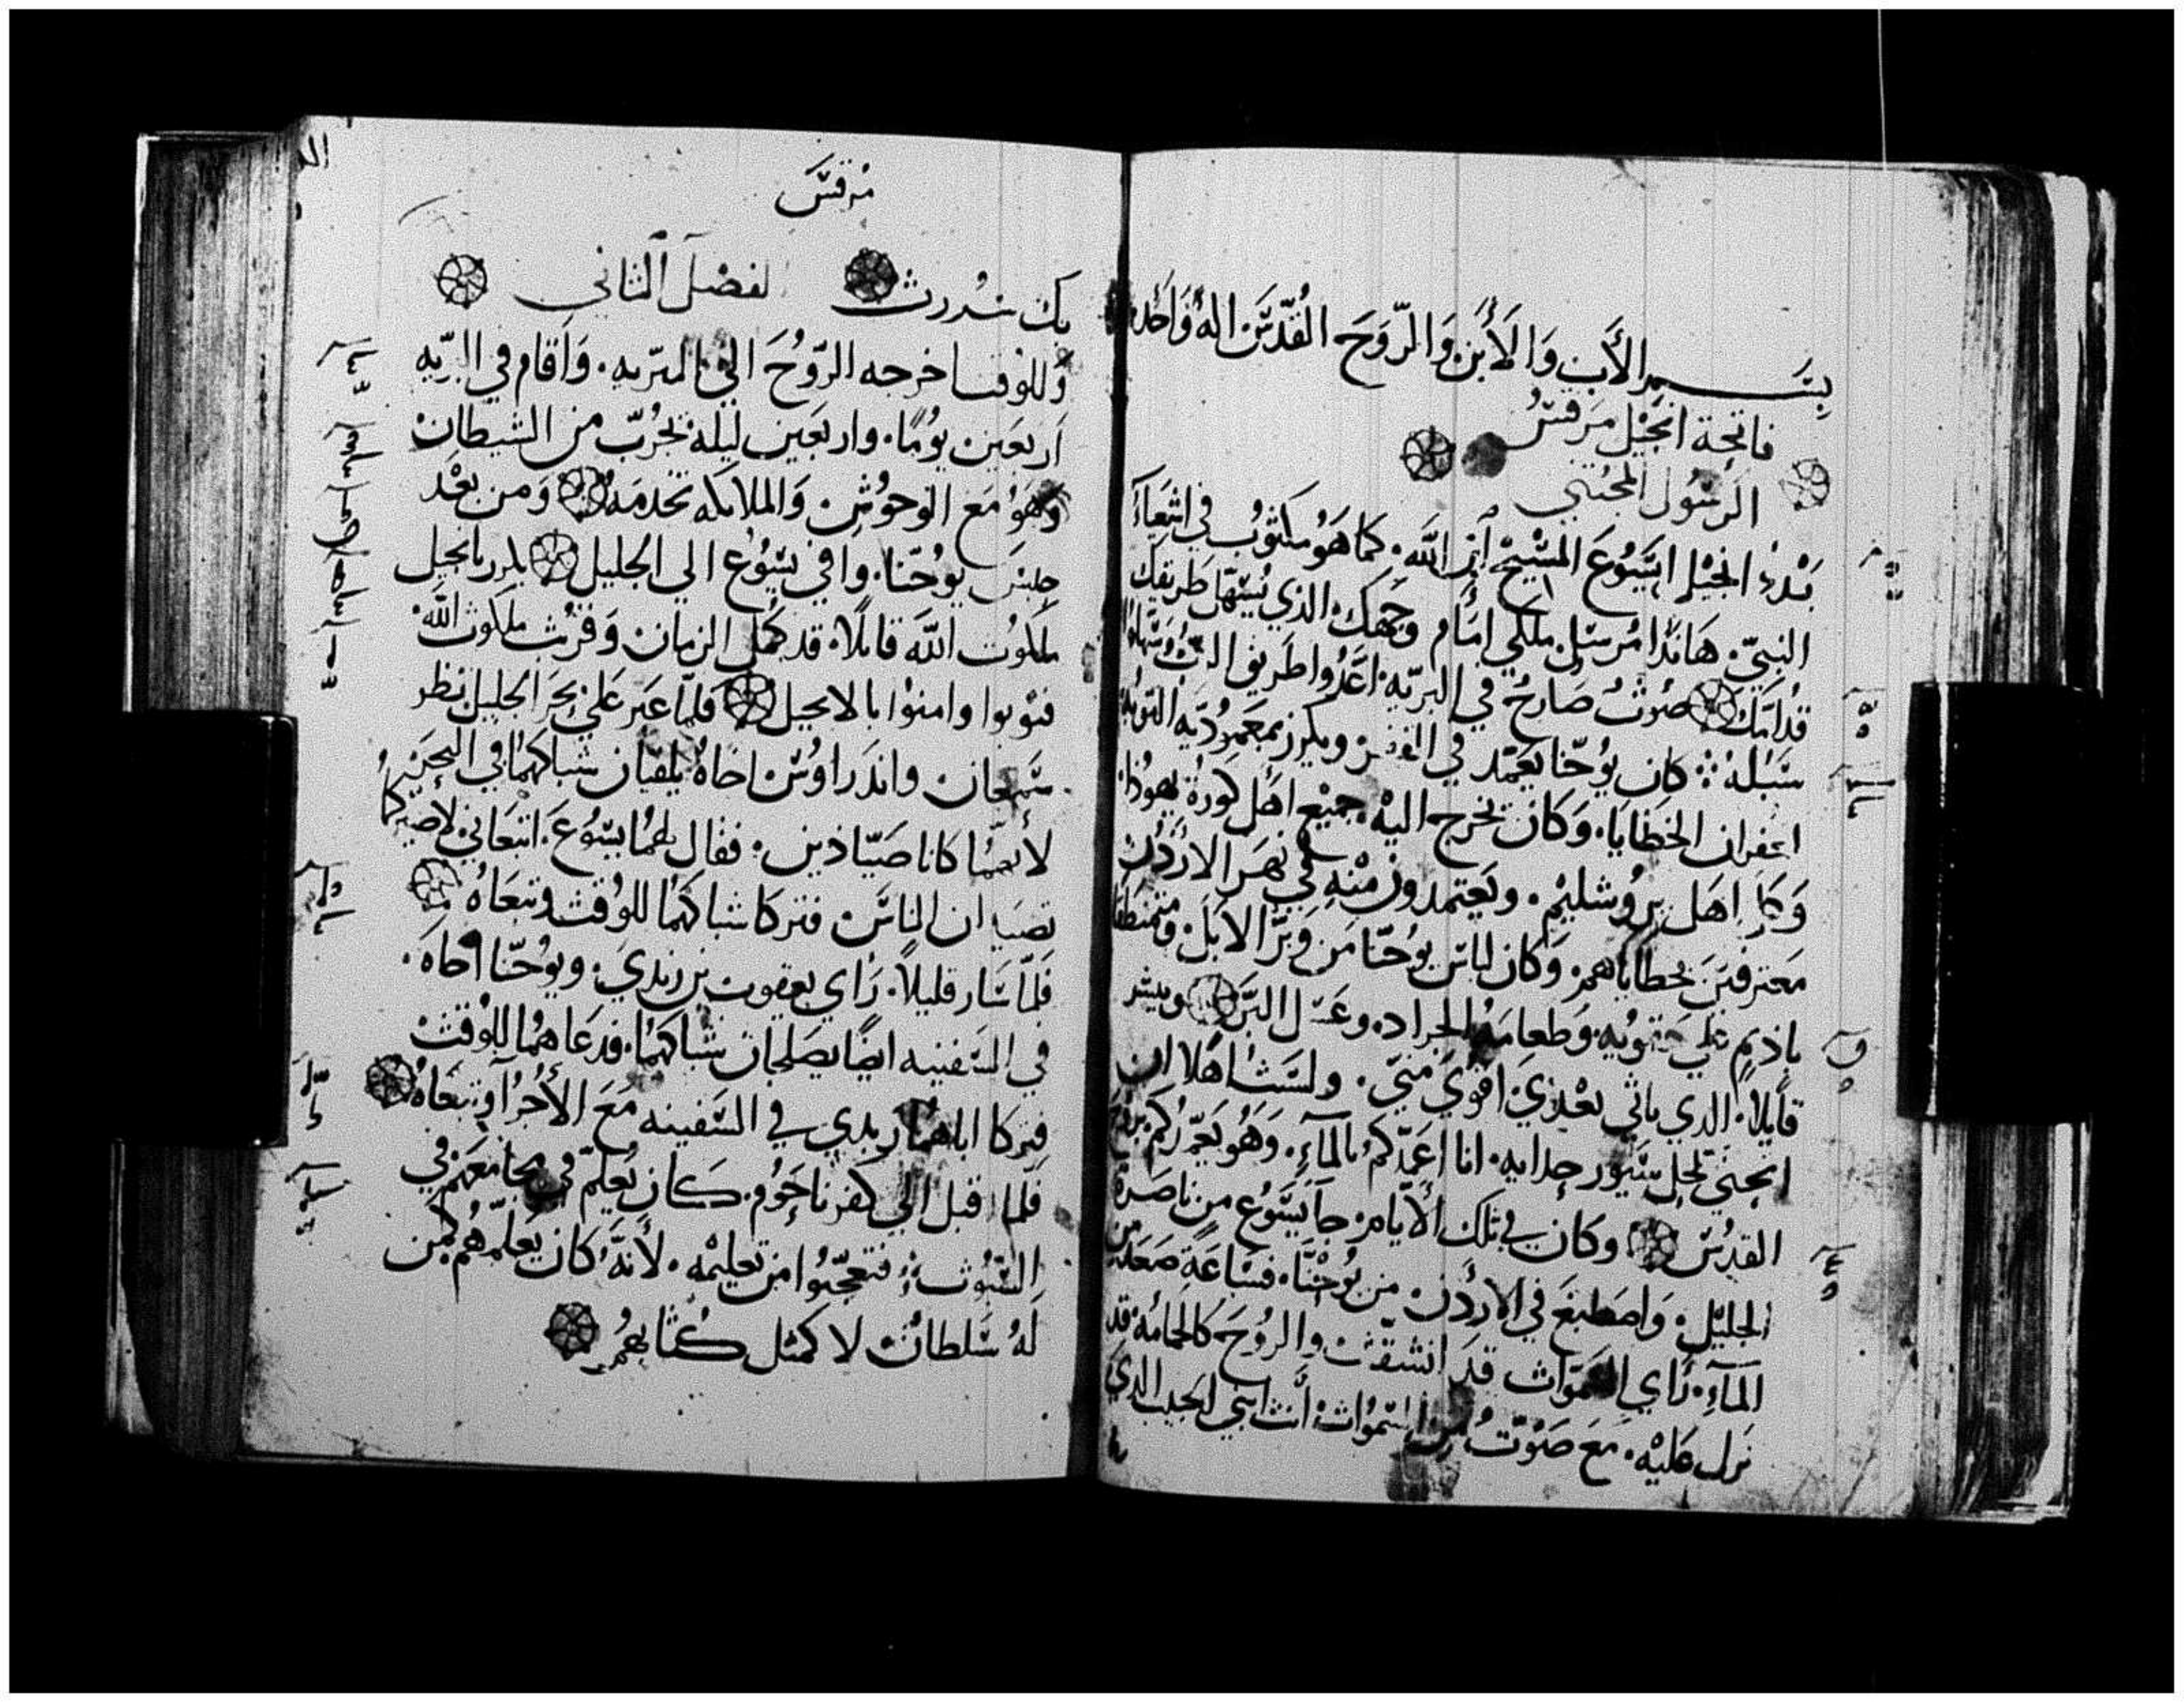 بسم الأب والأبن والروح القدس اله واحد
فاتحة انجيل مرقس
الرسول المجتبي
بدء انجيل ايسوع المسيح ابن الله. كما هو مكتوب في اشعياء
النبي. هانذا مرسل ملكي امام وجهك. الذي يسهل طريقك
قدامك صوت صارخ في البريه. اعدوا طريق الرب وسهلوا
سبله كان يوحنا يعمد في القفر ويكرز بمعموديه التوبة
لغفران الخطايا. وكان تخرج اليه جميع اهل كورة يهوذا.
وكل اهل يروشليم. ويعتمدون منه في نهر الاردن
معترفين بخطاياهم. وكان لباس يوحنا من وبر الابل. ومتمنطقا
باديم علي حقويه. وطعامه الجراد. وعسل البر ويبشر
قايلا. الدي ياتي بعدي اقوي مني. ولست اهلا ان
انحني لحل سيور حدايه. انا اعمدكم بالماء. وهو يعمدكم بروح
القدس وكان في تلك الأيام. جا يسوع من ناصرة
الجليل. واصطبغ في الأردن من يوحنا. فساعة صعد من
الماء. راي السموات قد انشقت والروح كالحمامه قد
نزل عليه. مع صوت من السموات. أنت ابني الحبيب الدي
مرقس
بك سررت الفصل الثاني
وللوقت اخرجه الروح الي البريه. واقام في البريه
اربعين يوما. واربعين ليله. يجرب من الشيطان
وهو مع الوحوش والملايكه تخدمه ومن بعد
حبس يوحنا. وافي يسوع الي الجليل يكرز بانجيل
ملكوت الله قايلا. قد كمل الزمان وقربت ملكوت الله.
فتوبوا وامنوا بالانجيل فلما عبر علي بحر الجليل نظر
سمعان واندراوس اخاه يلقيان شباكهما في البحر
لأنهما كانا صيادين. فقال لهما يسوع. اتبعاني لأصيركما
تصيدان الناس فتركا شباكهما للوقت وتبعاه
فلما سار قليلا. راي يعقوب بن زبدي. ويوحنا اخاه.
في السفينه ايضا يصلحان شباكهما. فدعاهما للوقت
فتركا اباهما زبدي في السفينه مع الأجراء وتبعاه
فلما اقبل الي كفرناحوم. كان يعلم في مجامعهم في
السبوت. فتعجبوا من تعليمه. لأنه كان يعلمهم كمن
له سلطان لا كمثل كتابهم